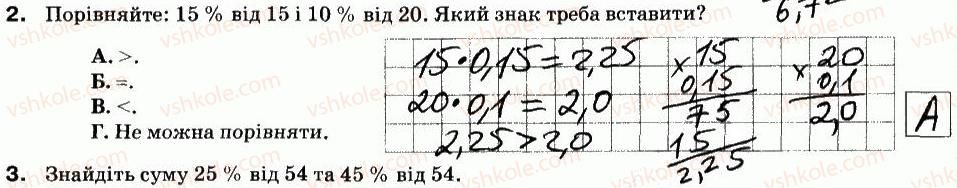 2. Порівняйте: 15 % від 15 і 10 % від 20. Який знак треба вставити?
6,7
А. >.
Б. =.
В. <.
Г. Не можна порівняти.
15·0,15 = 2,25
20·0,1 = 2,0
2,25 > 2,0
×15
0,15
75
15
2,25
×20
0,1
2,0
А
3. Знайдіть суму 25 % від 54 та 45 % від 54.